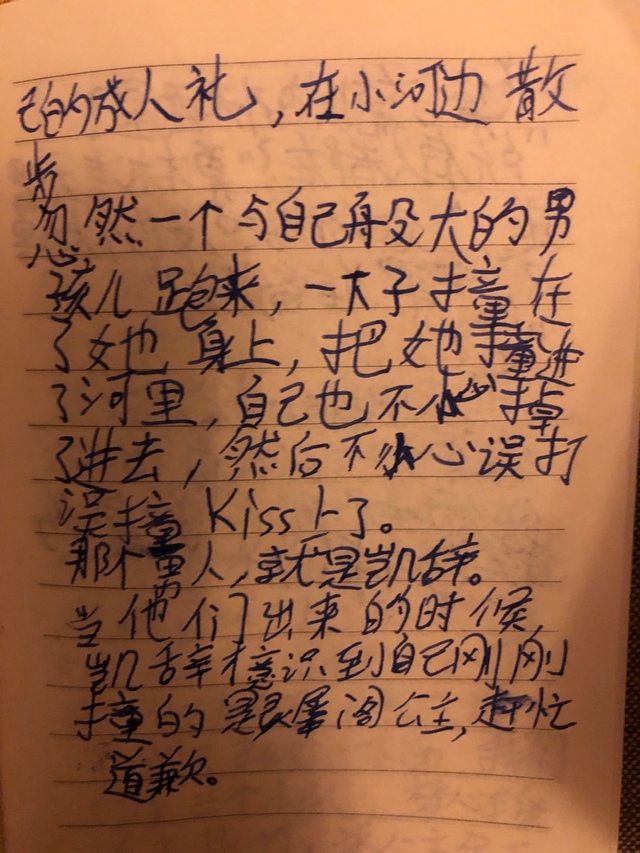 己的成人礼,在小河边散
步
忽然一个与自己年段大的男
孩儿跑来,一下子撞在
了她身上,把她撞进
了河里,自己也不小心掉
了进去,然后不小心误打
误撞Kiss上了。
那个男人,就是凯辞。
当他们出来的时候,
凯辞才意识到自己刚刚
撞的是公主,赶忙
道歉。